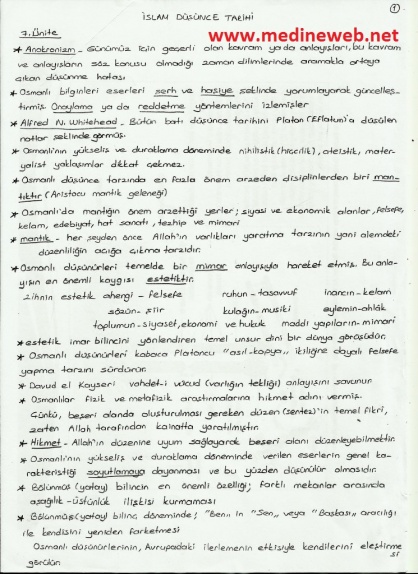 ①
İSLAM DÜŞÜNCE TARİHİ
www.medineweb.net
7. Ünite
* Anakronizm - Günümüz için geçerli olan kavram ya da anlayışları, bu kavram
ve anlayışların söz konusu olmadığı zaman dilimlerinde aramakla ortaya
çıkan düşünme hatası
* Osmanlı bilginleri eserleri şerh ve haşiye şeklinde yorumlayarak güncelleş-
tirmiş. Onaylama ya da reddetme yöntemlerini izlemişler
* Alfred N. Whitehead - Bütün batı düşünce tarihini Platon (Eflatun)'a düşülen
notlar şeklinde görmüş.
* Osmanlı'nın yükseliş ve duraklama döneminde nihilistik (hiççilik), ateistik, mater-
yalist yaklaşımlar dikkat çekmez.
* Osmanlı düşünce tarzında en fazla önem arzeden disiplinlerden biri man-
tıktır (Aristocu mantık geleneği)
* Osmanlı'da mantığın önem arzettiği yerler; siyasi ve ekonomik alanlar, felsefe,
kelam, edebiyat, hat sanatı, tezhip ve mimari
* mantık - her şeyden önce Allah'ın varlıkları yaratma tarzının yani alemdeki
düzenliliğin açığa çıkma tarzıdır.
* Osmanlı düşünürleri temelde bir mimar anlayışıyla hareket etmiş. Bu anla-
yışın en önemli kaygısı estetiktir.
zihnin estetik ahengi - felsefe ruhun - tasavvuf inancın - kelam
sözün - şiir kulağın - musiki eylemin - ahlâk
toplumun - siyaset, ekonomi ve hukuk maddi yapıların - mimari
* estetik imar bilincini yönlendiren temel unsur dini bir dünya görüşüdür.
* Osmanlı düşünürleri kabaca Platoncu "asıl - kopya" ikiliğine dayalı felsefe
yapma tarzını sürdürür.
* Davud el Kayseri vahdet-i vücud (varlığın tekliği) anlayışını savunur
* Osmanlılar fizik ve metafizik araştırmalarına hikmet adını vermiş.
Çünkü, beşeri alanda oluşturulması gereken düzen (sentez)'in temel fikri,
zaten Allah tarafından kainatta yaratılmıştır.
* Hikmet - Allah'ın düzenine uyum sağlayarak beşeri alanı düzenleyebilmektir.
* Osmanlı'nın yükseliş ve duraklama döneminde verilen eserlerin genel ka-
rakteristiği soyutlamaya dayanması ve bu yüzden düşünülür olmasıdır.
* Bölünmüş (yatay) bilincin en önemli özelliği; farklı mekanlar arasında
aşağılık - üstünlük ilişkisi kurmaması
* Bölünmüş (yatay) bilinç döneminde; "Ben" in "Sen" veya "Başkası" aracılığı
ile kendisini yeniden farketmesi
Osmanlı düşünürlerinin, Avrupadaki ilerlemenin etkisiyle kendilerini eleştirme
si
görülür.